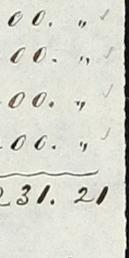 00. „
00. „
00. „
00. „
231. 21